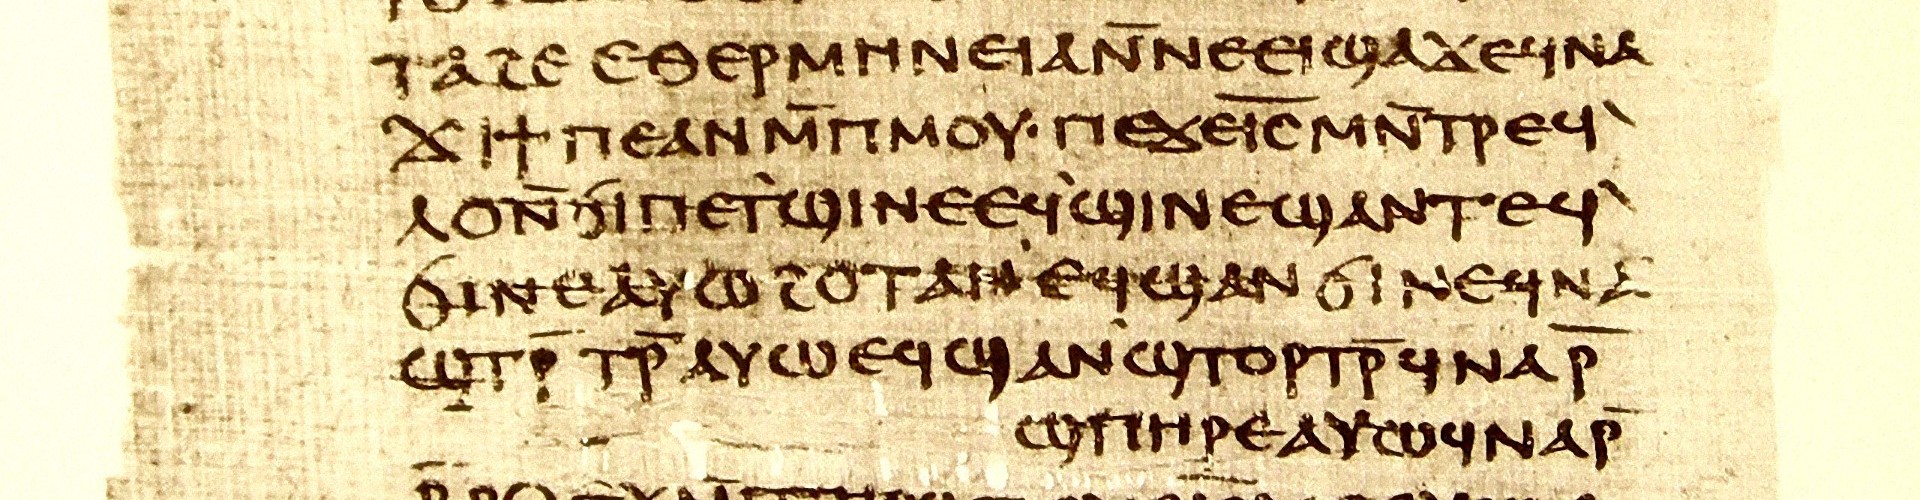 ϩⲁϩⲧⲉ ⲉⲑⲉⲣⲙⲏⲛⲉⲓⲁ ⲛ̄ⲛⲉⲉⲓϣⲁϫⲉ ϥⲛⲁ
ϫⲓϯⲡⲉ ⲁⲛ ⲙ̄ⲡⲙⲟⲩ· ⲡⲉϫⲉ ⲓ̄ⲥ̄ ⲙⲛ̄ⲧⲣⲉϥ`
ⲗⲟ ⲛ̄ϭⲓ ⲡⲉⲧ`ϣⲓⲛⲉ ⲉϥ`ϣⲓⲛⲉ ϣⲁⲛⲧⲉϥ`
ϭⲓⲛⲉ ⲁⲩⲱ ϩⲟⲧⲁⲛ` ⲉϥϣⲁⲛϭⲓⲛⲉ ϥⲛⲁ
ϣⲧⲣ̄ⲧⲣ̄ ⲁⲩⲱ ⲉϥϣⲁⲛ`ϣⲧⲟⲣⲧⲣ̄ ϥⲛⲁⲣ̄
ϣⲡⲏⲣⲉ ⲁⲩⲱ ϥⲛⲁⲣ̄